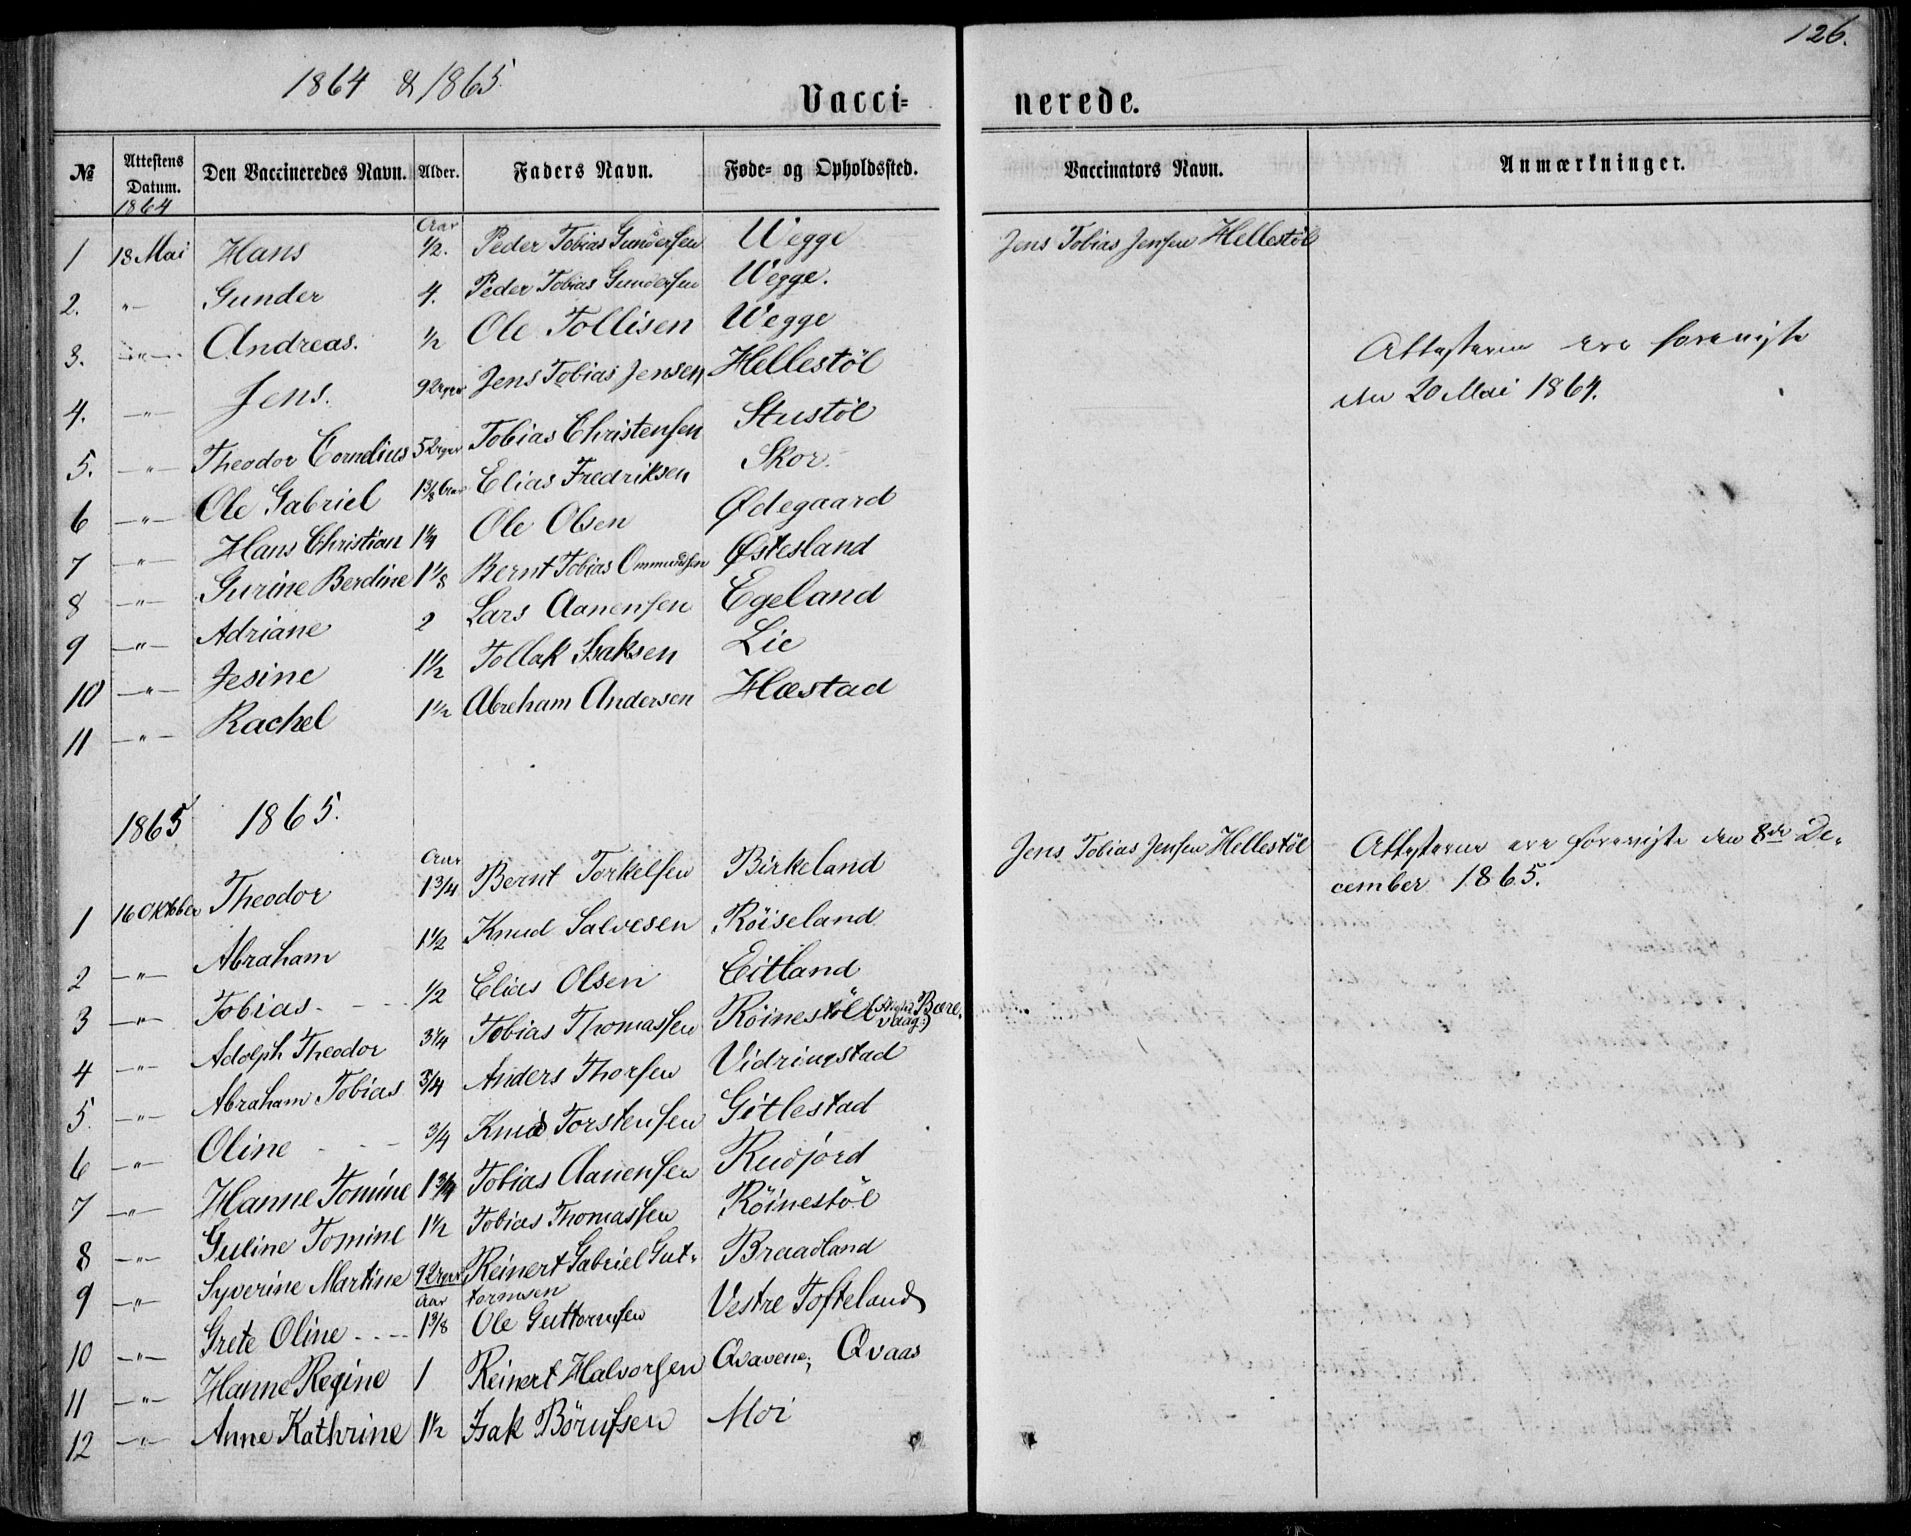 126.
1864 & 1865
Vacci- nerede.
№ Attestens Datum. Den Vaccineredes Navn. Alder. Faders Navn. Føde- og Opholdssted. Vaccinators Navn. Anmærkninger.
1864 Aar
1 18 Mai Hans 1/2. Peder Tobias Gundersen Wegge Jens Tobias Jensen Hellestöl
2. -"- Gunder 4. Peder Tobias Gundersen Wegge.
3. -"- Andreas. 1/2 Ole Tollisen Wegge Attesterne ere foreviste
4. -"- Jens. 9 Uger Jens Tobias Jensen Hellestöl den 20 Mai 1864.
5. -"- Theodor Cornelius 5 Uger Tobias Christensen Stustöl
6 -"- Ole Gabriel 1 3/8 Aar Elias Fredriksen Skor.
7 -"- Hans Christian 1 1/4 Ole Olsen Ødegaard
8 -"- Gurine Berdine 1 1/8 Bernt Tobias Ommundsen Østesland
9 -"- Adriane 2 Lars Aanensen Egeland
10 -"- Jesine 1 1/2 Tollak Isaksen Lie
11 -"- Rachel 1 1/2 Abreham Andersen Hæstad
1865 1865.
Aar
1 16 Oktober Theodor 1 3/4 Bernt Torkelsen Birkeland Jens Tobias Jensen Hellestöl Attesterne ere foreviste den 8de De-
cember 1865.
2 -"- Abraham 1 1/2 Knud Salvesen Röiseland
3 -"- Tobias - - - 1/2 Elias Olsen Eitland
4 -"- Adolph Theodor 3 1/4 Tobias Thomassen Röinestöl Bære-
vaag:)
5. -"- Abraham Tobias 3/4 Anders Thorsen Vidringstad
6 -"- Oline - - 3/4 Knud Torstensen Gitlestad
7 -"- Hanne Tomine 1 3/4 Tobias Aanensen Rudjord
8 -"- Guline Tomine 1 1/2 Tobias Thomassen Röinestöl
9 -"- Syverine Martine 9 Uger Reinert Gabriel Gut-
tormsen Braadland
Aar
10 -"- Grete Oline - - - 1 3/8 Ole Guttormsen Vestre Tofteland
11 -"- Hanne Regine 1 Reinert Halvorsen Qvavene, Qvaas
12 -"- Anne Kathrine 1 1/2 Isak Börufsen Moi